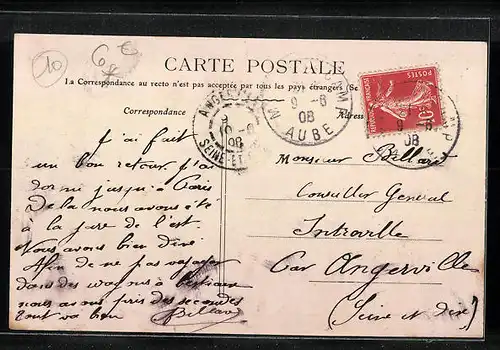 10
6€
CARTE POSTALE
La Correspondance au recto n'est pas acceptée par tous les pays étrangers (Se
Correspondance
Adres
ANGE
9-6
08
SEINE-ET
9-6
08
AUBE
POSTES
REPUBLIQUE FRANÇAISE
10c
9-6
08
J'ai fait
un bon retour. J'ai
dormi jusqu'à Paris
De la nous avons été
à la gare de l'est.
Nous avons bien diné
Afin de ne pas voyager
dans des wagons à bestiaux
nous avons pris des secondes
Tout va bien
Billard
Monsieur Billard
Conseiller General
Intreville
Par Angerville
(Seine et Oise)